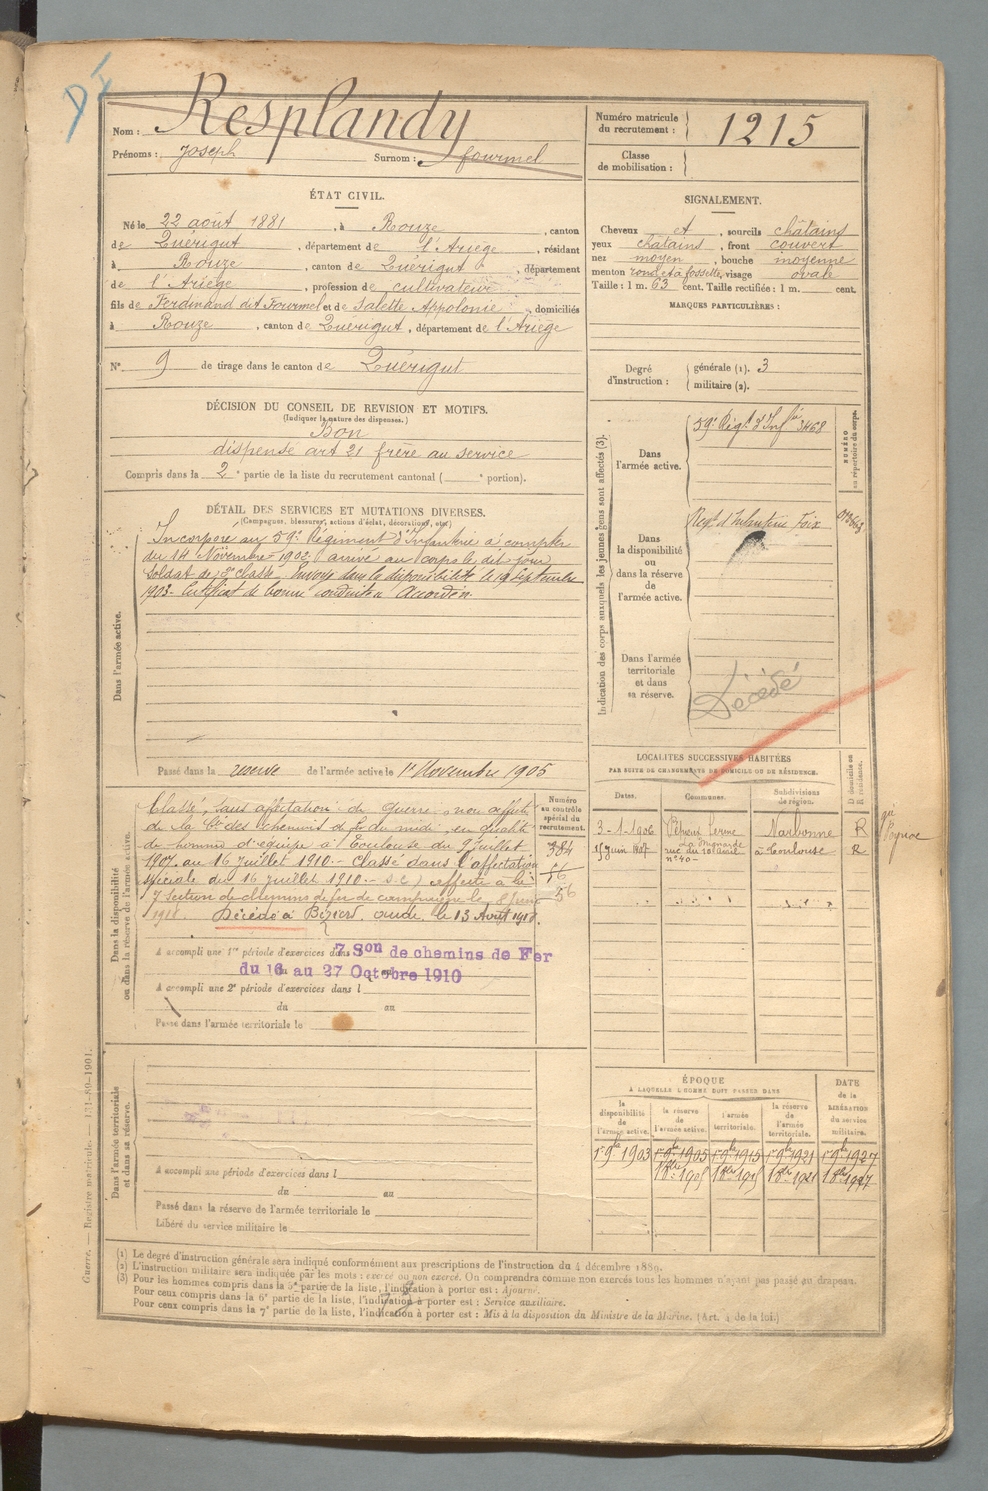 Nom : Resplandy
Prénoms : Joseph Surnom : fourmel
Numéro matricule du recrutement : 1215
Classe de mobilisation :
ÉTAT CIVIL.
Né le 22 août 1881, à Rouze, canton
de Quérigut, département de l'Ariège, résidant
à Rouze, canton de Quérigut, département
de l'Ariège, profession de cultivateur
fils de Ferdinand dit Fourmel et de Salette Appolonie, domiciliés
à Rouze, canton de Quérigut, département de l'Ariège
N° 9 de tirage dans le canton de Quérigut
SIGNALEMENT.
Cheveux et, sourcils châtains
yeux châtains, front couvert
nez moyen, bouche moyenne
menton rond et à fossette, visage ovale
Taille : 1 m. 63 cent. Taille rectifiée : 1 m. cent.
MARQUES PARTICULIÈRES :
Degré d'instruction : générale (1). 3
militaire (2).
DÉCISION DU CONSEIL DE REVISION ET MOTIFS.
(Indiquer la nature des dispenses.)
Bon
dispensé art 21 frère au service
Compris dans la 2e partie de la liste du recrutement cantonal ( e portion).
DÉTAIL DES SERVICES ET MUTATIONS DIVERSES.
(Campagnes, blessures, actions d'éclat, décorations, etc.)
Dans l'armée active.
Incorporé au 59e Régiment d'Infanterie à compter
du 14 Novembre 1902, arrivé au corps le dit jour
Soldat de 2e classe. Envoyé dans la disponibilité le 19 Septembre
1903. Certificat de bonne conduite "Accordé".
Passé dans la réserve de l'armée active le 1er Novembre 1905
Indication des corps auxquels les jeunes gens sont affectés (3).
NUMÉRO au répertoire du corps.
Dans l'armée active.
59e Régt d'Infie 3468
Dans la disponibilité ou dans la réserve de l'armée active.
Régt d'Infanterie Foix
Dans l'armée territoriale et dans sa réserve.
Décédé
LOCALITÉS SUCCESSIVES HABITÉES
PAR SUITE DE CHANGEMENTS DE DOMICILE OU DE RÉSIDENCE.
Dates. Communes. Subdivisions de région. D domicile ou R résidence.
3-1-1906 Narbonne R
15 Juin 1907 rue du 10 avril n° 40 à Toulouse R
Dans la disponibilité ou dans la réserve de l'armée active.
Numéro au contrôle spécial du recrutement.
384
56
56
Classé, sans affectation de guerre, non affecté
de la Cie des chemins de fer du midi, en qualité
d'homme d'équipe à Toulouse du 9 juillet
1907 au 16 juillet 1910. - Classé dans l'affectation
spéciale du 16 juillet 1910. - affecté à la
7 Section de chemins de fer de campagne le
1918. Décédé à Béziers, le 13 Août 1918.
A accompli une 1re période d'exercices dans
7 Son de chemins de Fer
du 16 au 27 Octobre 1910
A accompli une 2e période d'exercices dans l
du au
Passé dans l'armée territoriale le
Dans l'armée territoriale et dans sa réserve.
A accompli une période d'exercices dans l
du au
Passé dans la réserve de l'armée territoriale le
Libéré du service militaire le
ÉPOQUE
A LAQUELLE L'HOMME DOIT PASSER DANS
la disponibilité de l'armée active. la réserve de l'armée active. l'armée territoriale. la réserve de l'armée territoriale. DATE de la LIBÉRATION du service militaire.
1er 9bre 1903 1er 9bre 1905 1er 9bre 1915 1er 9bre 1921 1er 9bre 1927
(1) Le degré d'instruction générale sera indiqué conformément aux prescriptions de l'instruction du 4 décembre 1889.
(2) L'instruction militaire sera indiquée par les mots : exercé ou non exercé. On comprendra comme non exercés tous les hommes n'ayant pas passé au drapeau.
(3) Pour les hommes compris dans la 5e partie de la liste, l'indication à porter est : Ajourné.
Pour ceux compris dans la 6e partie de la liste, l'indication à porter est : Service auxiliaire.
Pour ceux compris dans la 7e partie de la liste, l'indication à porter est : Mis à la disposition du Ministre de la Marine. (Art. 4 de la loi.)
Guerre. — Registre matricule. — 131-89-1901.